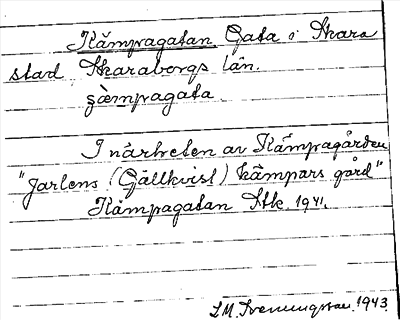 Kämpagatan. Gata i Skara
stad, Skaraborgs län.
çèmpagata.
I närheten av Kämpagården
"Jarlens (Gällkvist) kämpars gård"
Kämpagatan Stk. 1941.
S.M. Svenningsson. 1943.